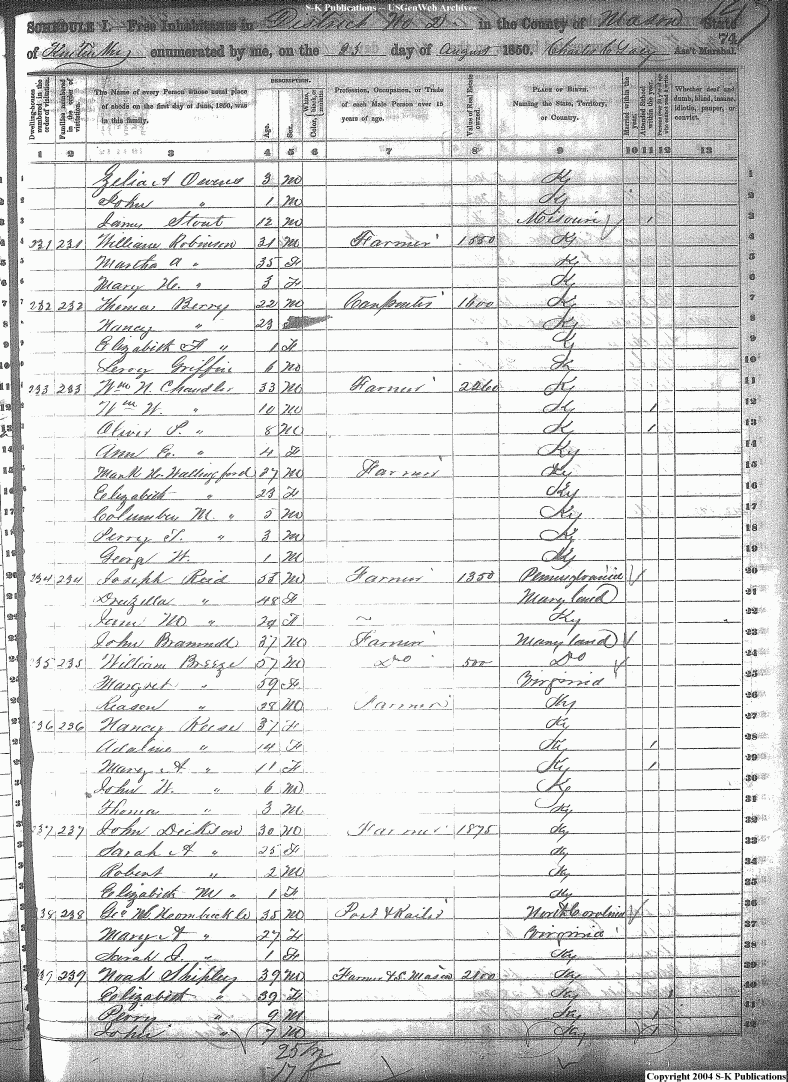 S-K Publications -- USGenWeb Archives
SCHEDULE I.—Free Inhabitants in District No. 2 in the County of Mason State
of Kentucky enumerated by me, on the 23 day of August 1850. Ass't Marshal. 74
Dwelling-houses numbered in the order of visitation. Families numbered in the order of visitation. The Name of every Person whose usual place of abode on the first day of June, 1850, was in this family. DESCRIPTION. Age. Sex. Color, White, black, or mulatto. Profession, Occupation, or Trade of each Male Person over 15 years of age. Value of Real Estate owned. PLACE OF BIRTH. Naming the State, Territory, or Country. Married within the year. Attended School within the year. Whether deaf and dumb, blind, insane, idiotic, pauper, or convict.
1 2 3 4 5 6 7 8 9 10 11 12 13
1 Zelia A Owens 3 M Ky 1
2 John " 1 M Ky 2
3 James Stout 12 M Misouri 1 3
4 231 231 William Robinson 31 M Farmer 1550 Ky 4
5 Martha A " 35 F Ky 5
6 Mary H. " 3 F Ky 6
7 232 232 Thomas Berry 22 M Carpenter 1600 Ky 7
8 Nancy " 23 F Ky 8
9 Elizabeth F " 1 F Ky 9
10 Leroy Griffin 6 M Ky 10
11 233 233 Wm N. Chandler 33 M Farmer Ky 11
12 Wm W. " 10 M Ky 1 12
13 Oliver P. " 8 M Ky 1 13
14 Ann E. " 4 F Ky 14
15 Mark H. Wallingford M Farmer Ky 15
16 Elizabeth " 23 F Ky 16
17 Columbus M. " 5 M Ky 17
18 Perry T. " 3 M Ky 18
19 George W. 1 M Ky 19
20 234 234 Joseph Reid M Farmer 1350 Pennsylvania 20
21 Druzella " 48 F Maryland 21
22 Jane M " 24 F ~ Ky 22
23 John 37 M Farmer Maryland 23
24 235 235 William Breeze 57 M Do 500 Do 24
25 Margret " 59 F Virginia 25
26 Reason " 28 M Farmer Ky 26
27 236 236 Nancy Reese 37 F Ky 27
28 Adaline " 14 F Ky 1 28
29 Mary A " 11 F Ky 1 29
30 John W. " 6 M Ky 30
31 Thomas " 3 M Ky 31
32 237 237 John Dickson 30 M Farmer 1875 Ky 32
33 Sarah A " 25 F Ky 33
34 Robert " 2 M Ky 34
35 Elizabeth M " 1 F Ky 35
36 238 238 Geo M. 35 M Post & Rails North Carolina 36
37 Mary A " 27 F Virginia 37
38 Sarah J. " 1 F Ky 38
39 239 239 Noah Shipley 39 M Farmer & S. Mason 2100 Ky 39
40 Elizabeth " 39 F Ky 1 40
41 Perry " 9 M Ky 1 41
42 John " 7 M Ky 1 42
25 M
17 F
Copyright 2004 S-K Publications